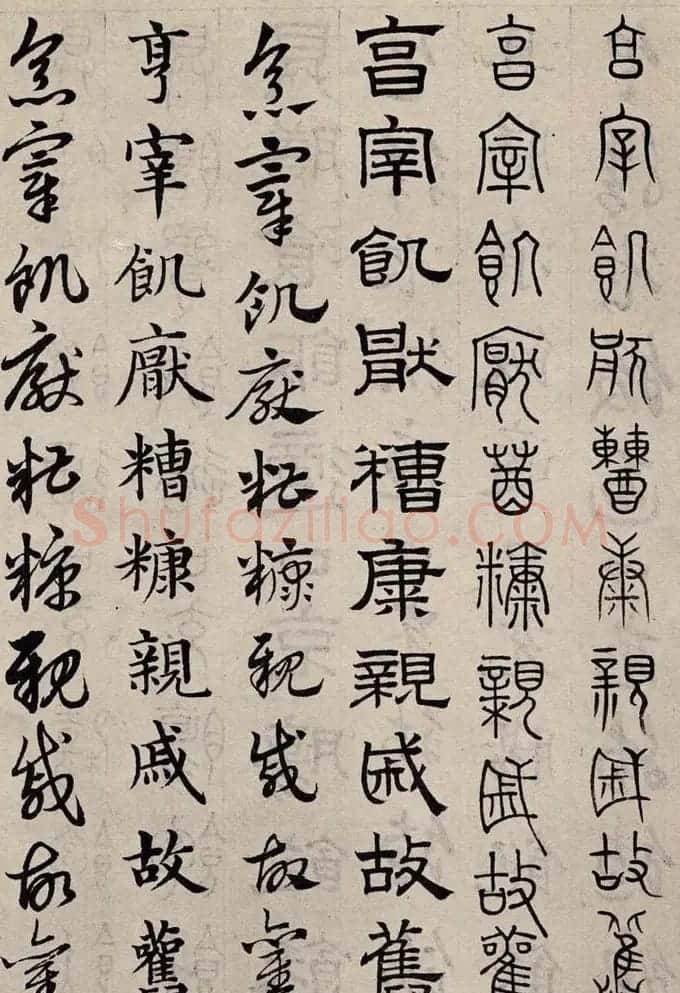 亯宰飢猒糟康親戚故舊
亯宰飢厭糟糠親戚故舊
亯宰飢猒糟康親戚故舊
烹宰飢厭糟糠親戚故舊
亨宰飢厭糟糠親戚故舊
烹宰飢厭糟糠親戚故舊
Shufaziliao.COM